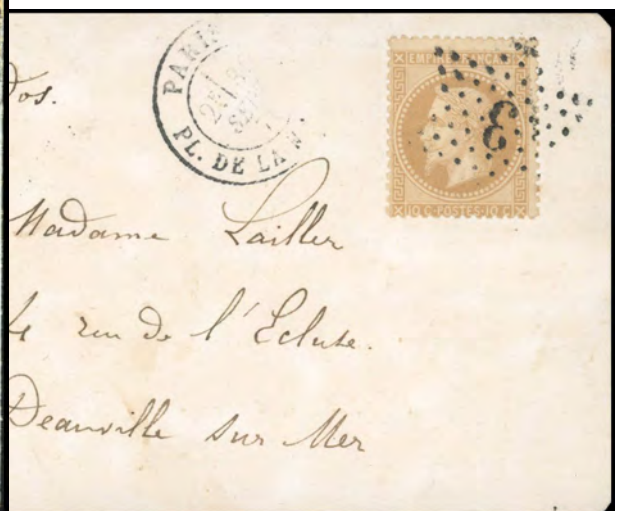 PARIS
PL. DE LA
EMPIRE FRANCAIS
3
10 C·POSTES·10 C
dos.
Madame Lailler
4 rue de l'Ecluse.
Deauville sur Mer